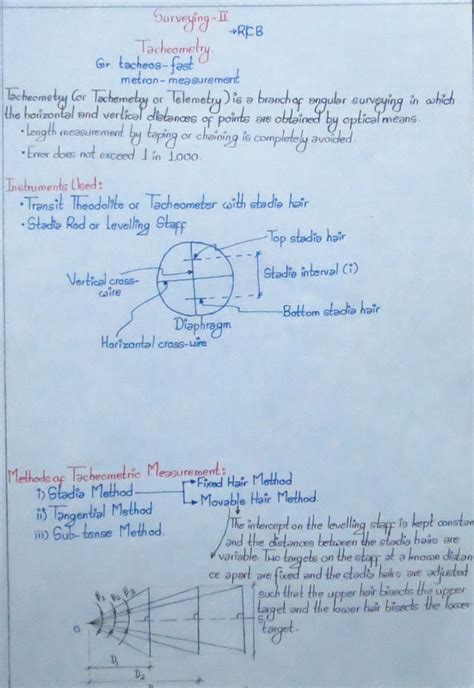 Surveying-II
→RCB
Tacheometry.
Gr. tacheos-fast
metron-measurement
Tacheometry (or Tachemetry or Telemetry) is a branch of angular surveying in which
the horizontal and vertical distances of points are obtained by optical means.
• Length measurement by taping or chaining is completely avoided.
• Error does not exceed 1 in 1,000.
Instruments Used:
• Transit Theodolite or Tacheometer with stadia hair
• Stadia Rod or Levelling Staff
Top stadia hair
Stadia interval (i)
Vertical cross-
wire
Bottom stadia hair
Diaphragm
Horizontal cross-wire
Methods of Tacheometric Measurement:
i) Stadia Method
Fixed Hair Method
Movable Hair Method.
ii) Tangential Method
iii) Sub-tense Method.
The intercept on the levelling staff is kept constan
and the distances between the stadia hairs are
variable. Two targets on the staff at a known distan
ce apart are fixed and the stadia hairs are adjusted
such that the upper hair bisects the upper
target and the lower hair bisects the lower
target.
β1 β2 β3
O
S
D1
D2